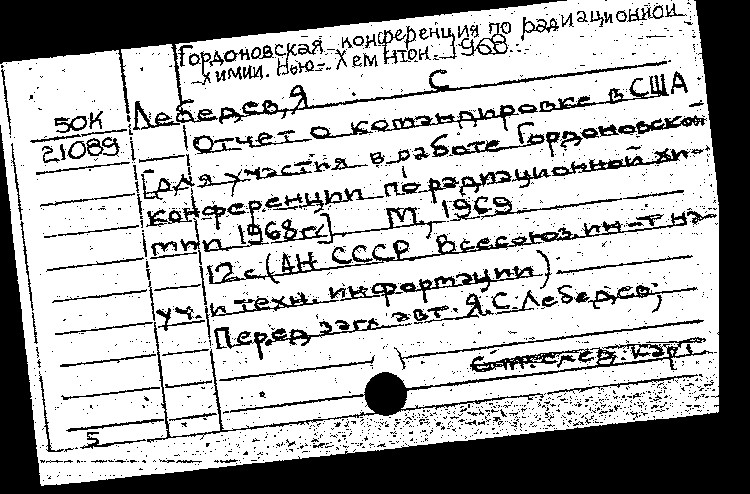 Гордоновская конференция по радиационной
химии. Нью-Хемптон. 1968.
50К
21089
Лебедев, Я. С
Отчет о командировке в США
[для участия в работе Гордоновской
конференции по радиационной хи-
мии 1968г.]. М., 1969
12 с (АН СССР Всесоюз. ин-т на-
уч. и техн. информации)
Перед загл авт. Я.С. Лебедев;
См. след. карт
5